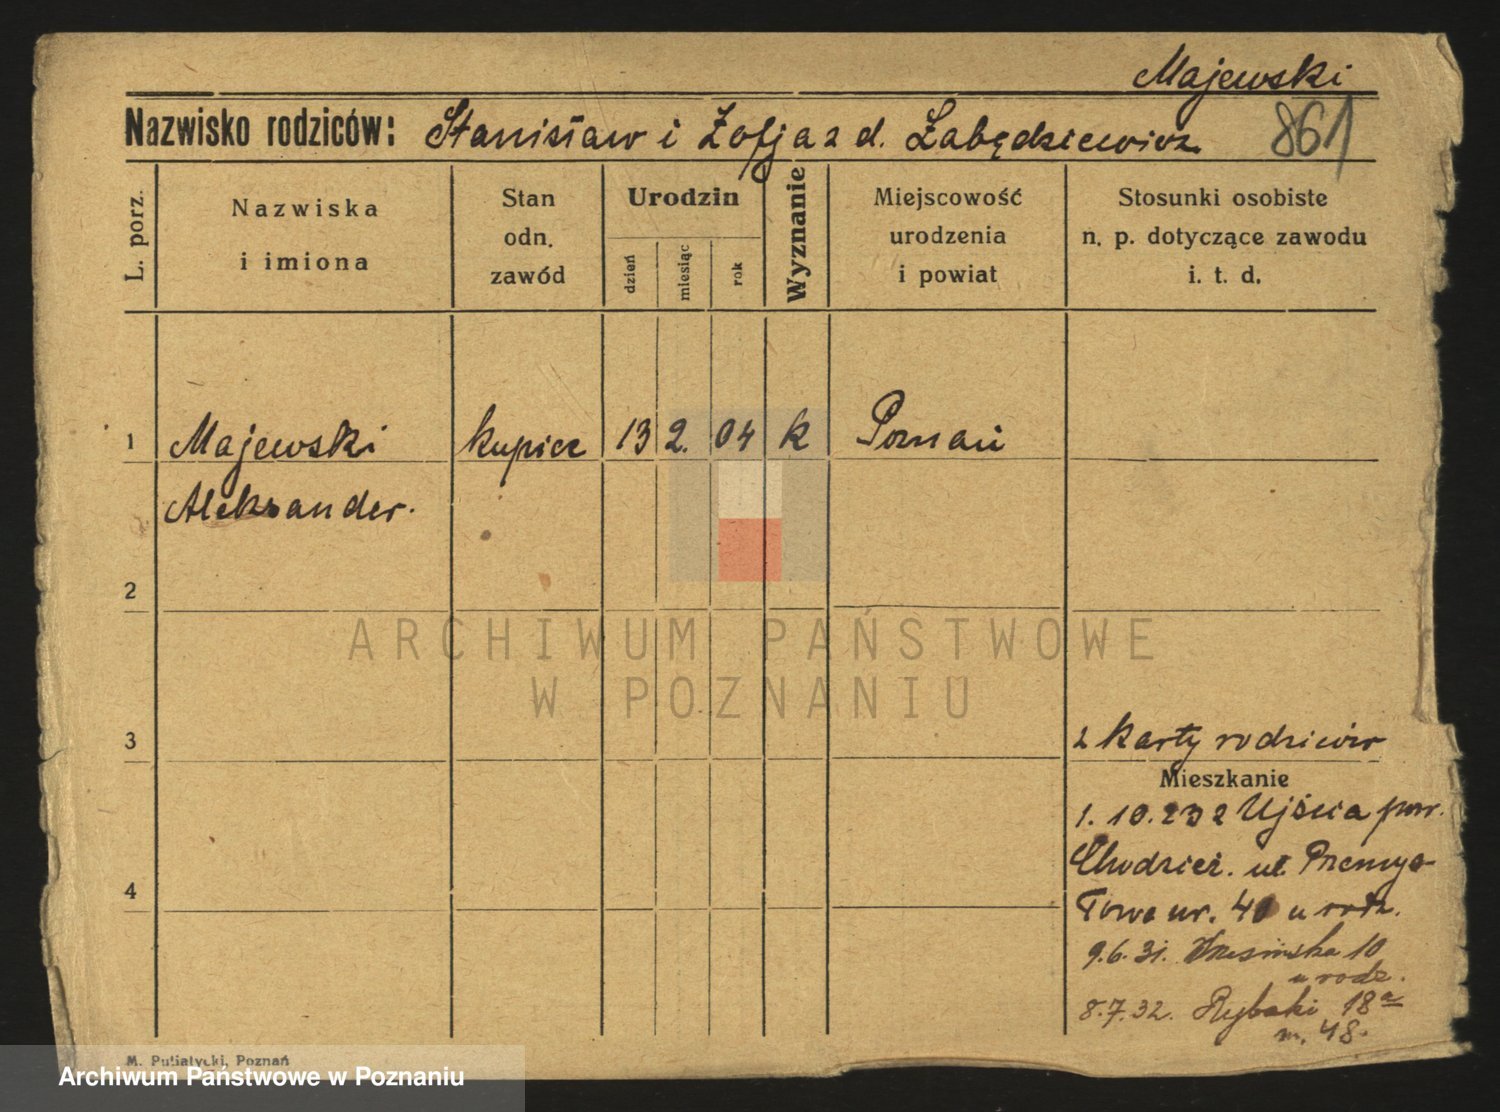 Majewski
Nazwisko rodziców: Stanisław i Zofja z d. Łabędziewicz
861
L. porz.
Nazwiska
i imiona
Stan
odn.
zawód
Urodzin
dzień
miesiąc
rok
Wyznanie
Miejscowość
urodzenia
i powiat
Stosunki osobiste
n. p. dotyczące zawodu
i. t. d.
1
Majewski
Aleksander.
kupiec
13
2.
04
k
Poznań
2
3
4
z karty rodziców
Mieszkanie
1. 10. 23 z Ujścia pow.
Chodzież. ul. Przemys-
łowa nr. u rodz.
9.6.31. Wrzesińska 10
u rodz.
8.7.32. Rybaki 18a
m. 48.
ARCHIWUM PAŃSTWOWE
W POZNANIU
M. Putiatycki, Poznań
Archiwum Państwowe w Poznaniu